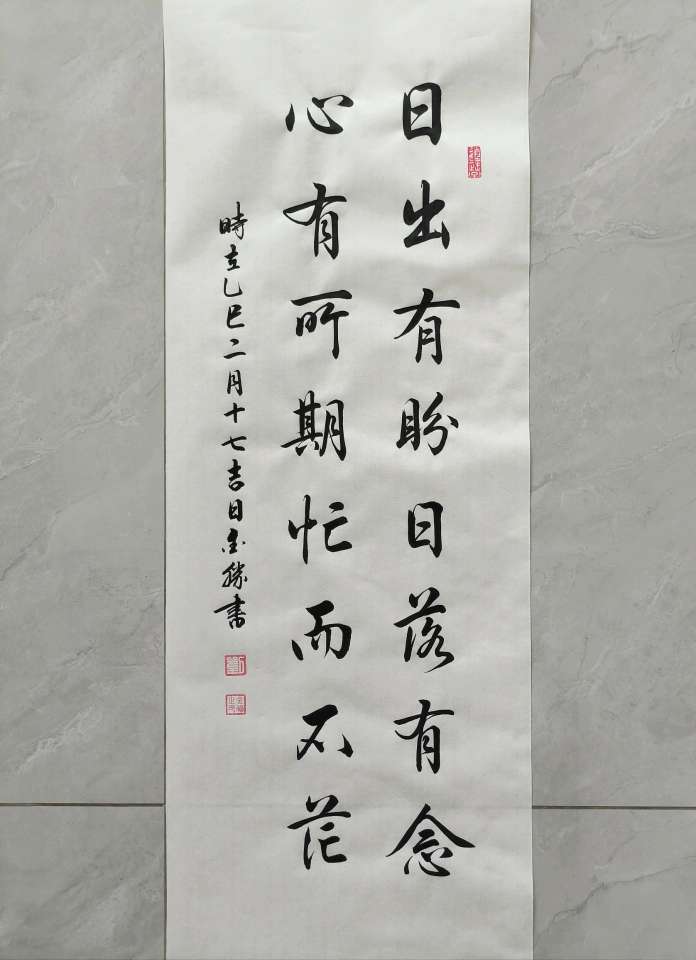 日出有盼日落有念
心有所期忙而不茫
時在乙巳二月十七吉日金勝書